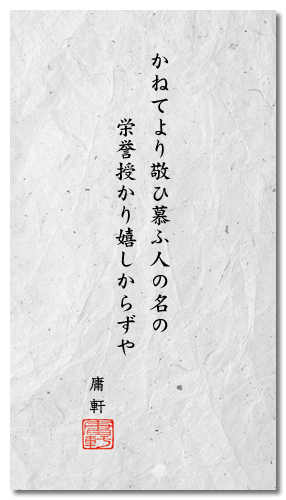 かねてより敬ひ慕ふ人の名の
栄誉授かり嬉しからずや
庸軒